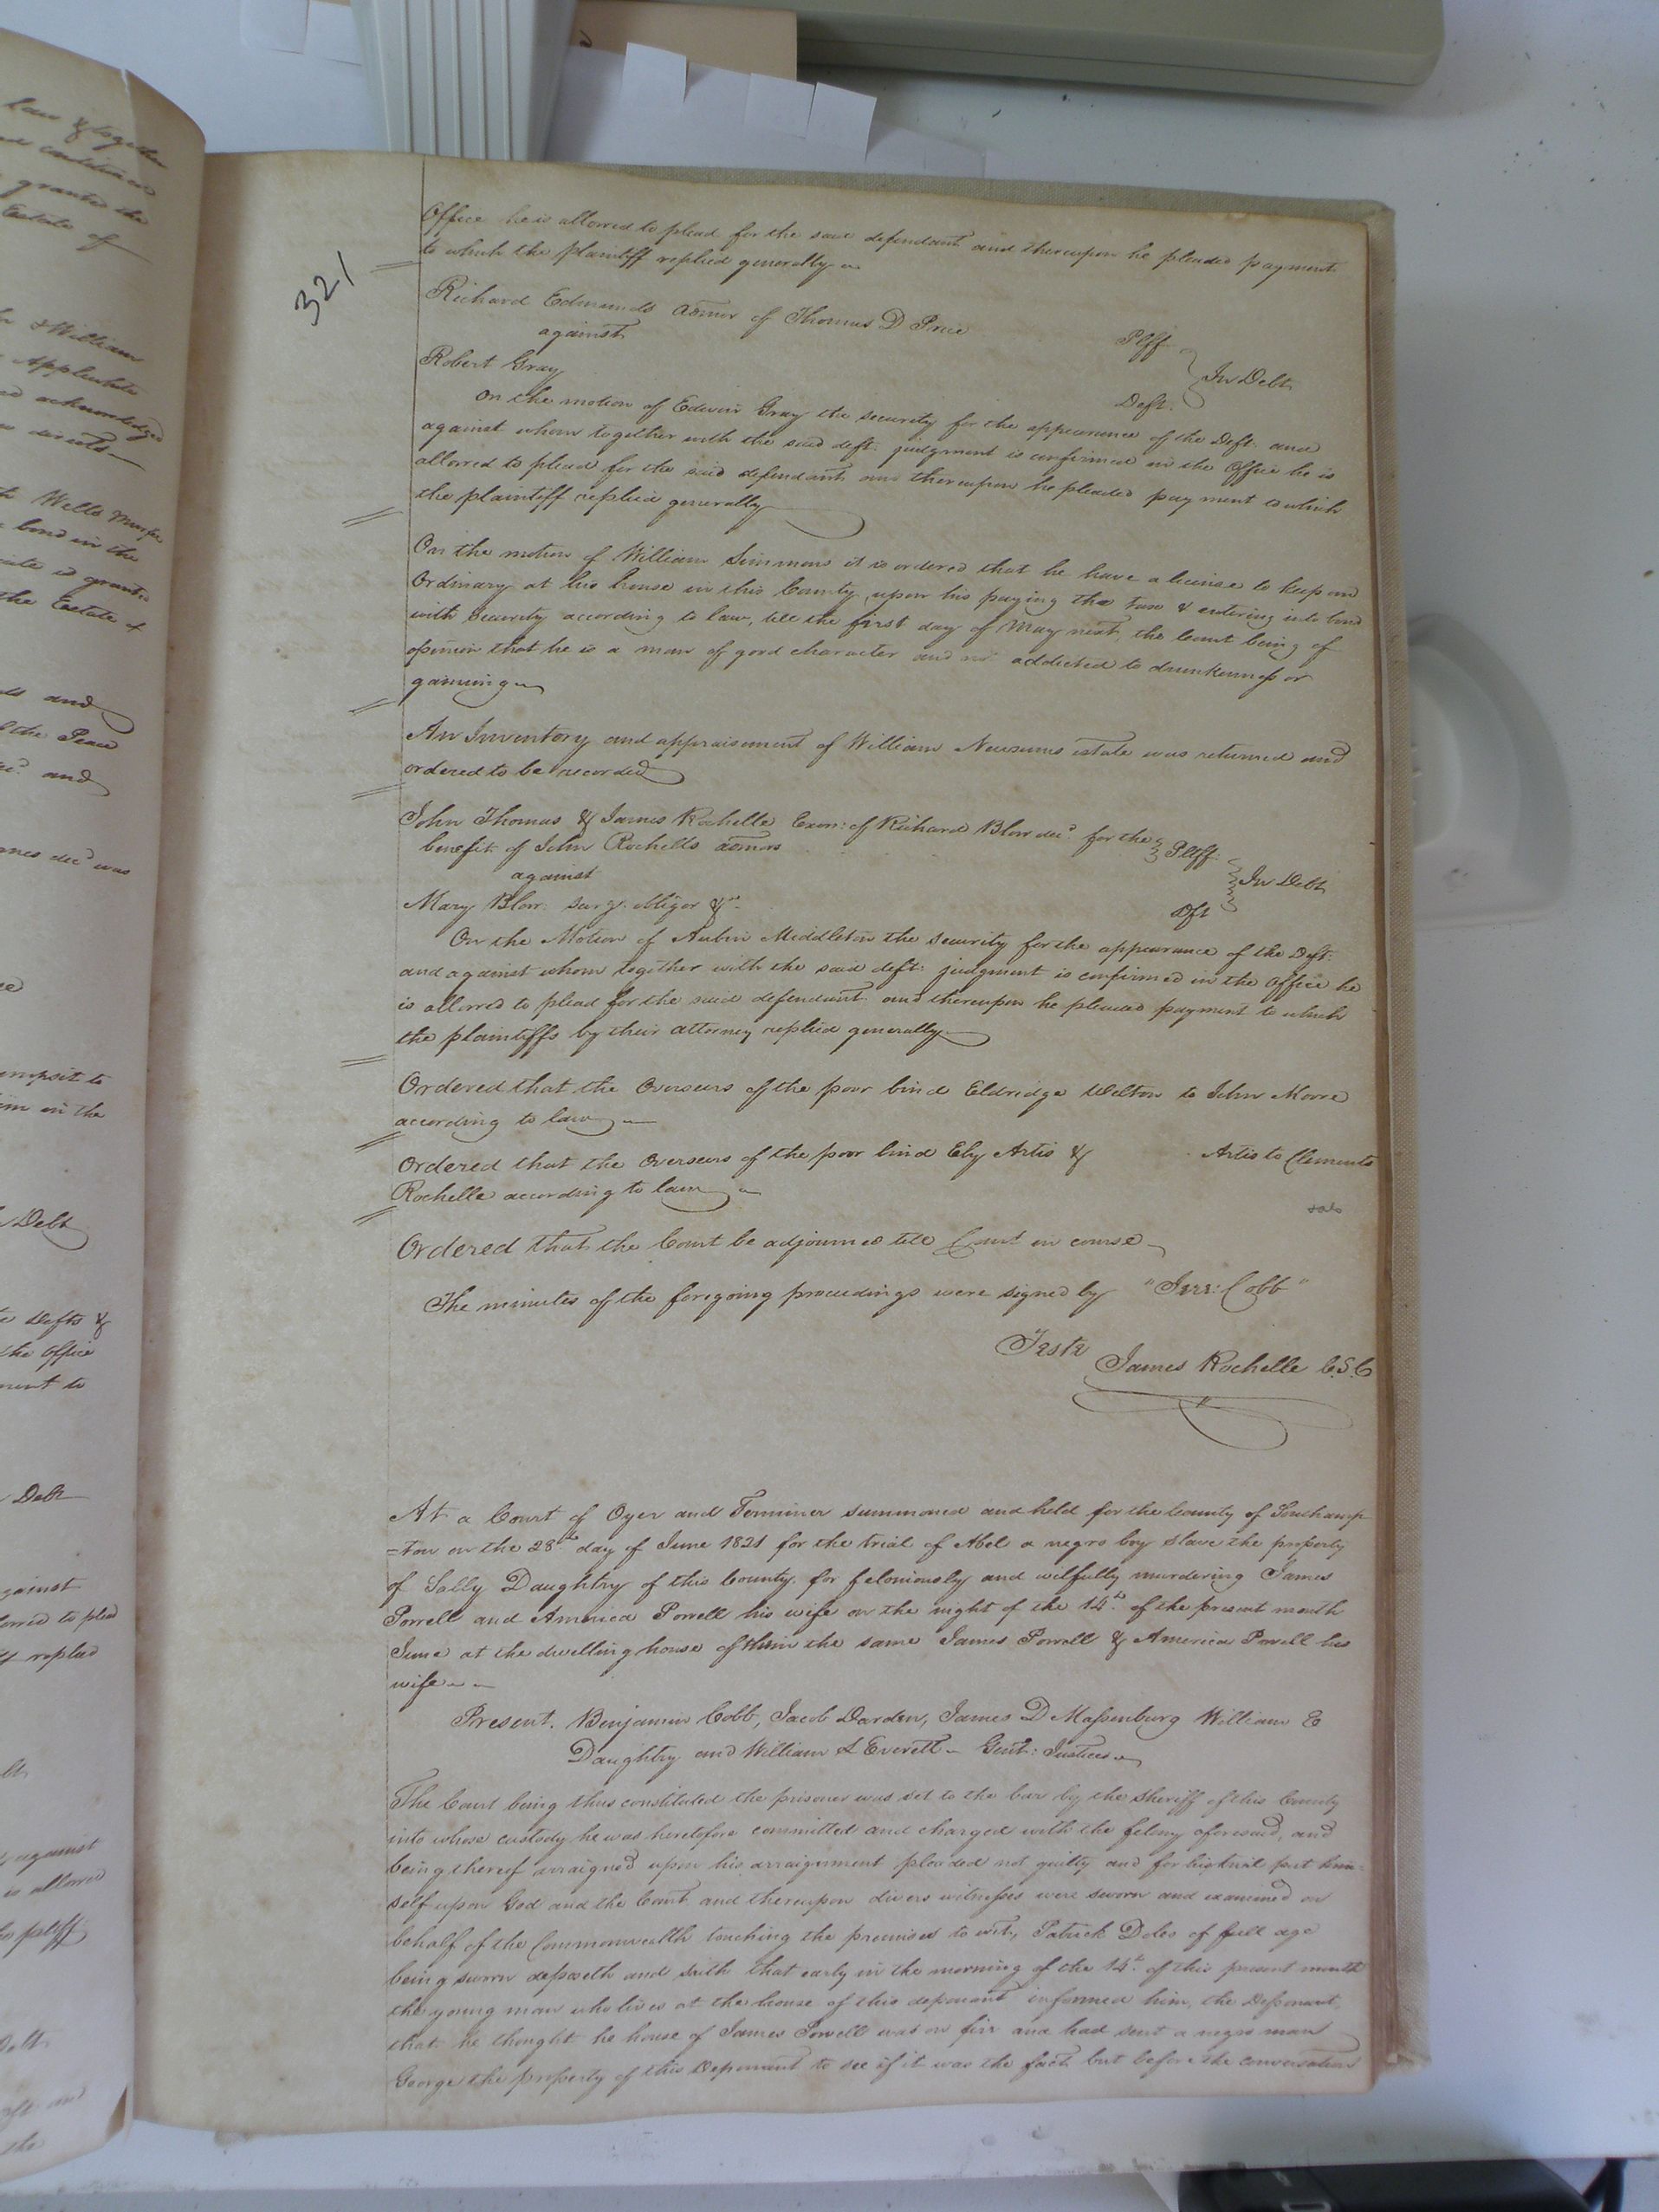 321
Office he is allowed to plead for the said defendant and thereupon he pleaded payment
to which the plaintiff replied generally
Richard Edmunds admor of Thomas D Price Plff
against
Robert Gray Deft. In Debt
On the motion of Edwin Gray the security for the appearance of the Deft. and
against whom together with the said deft: judgment is confirmed in the Office he is
allowed to plead for the said defendant and thereupon he pleaded payment to which
the plaintiff replied generally
On the motion of William Simmons it is ordered that he have a license to keep an
Ordinary at his house in this County upon his paying the tax & entering into bond
with security according to law, till the first day of May next, the Court being of
opinion that he is a man of good character and not addicted to drunkenness or
gaming
An Inventory and appraisement of William Newsums estate was returned and
ordered to be recorded
John Thomas & James Rochelle Exors: of Richard Blow decd. for the
benefit of John Rochells admors Plff:
against In Debt
Mary Blow surg. obligor &c. Dft
On the Motion of Aubin Middleton the security for the appearance of the Deft:
and against whom together with the said deft: judgment is confirmed in the Office he
is allowed to plead for the said defendant and thereupon he pleaded payment to which
the plaintiffs by their attorney replied generally
Ordered that the Overseers of the poor bind Eldridge Welton to John Moore
according to law
Ordered that the Overseers of the poor bind Ely Artis & Artis to Clements
Rochelle according to law
Ordered that the Court be adjourned till Court in course
The minutes of the foregoing proceedings were signed by "Jere: Cobb"
Teste
James Rochelle C.S.C
At a Court of Oyer and Terminer summoned and held for the County of Southamp
=ton on the 28th day of June 1821 for the trial of Abel a negro boy slave the property
of Sally Daughtry of this County for feloniously and wilfully murdering James
Powell and America Powell his wife on the night of the 14th of the present month
June at the dwelling house of them the same James Powell & America Powell his
wife
Present. Benjamin Cobb, Jacob Darden, James D Massenburg William E
Daughtry and William L Everett Gent: Justices
The Court being thus constituted the prisoner was set to the bar by the Sheriff of this County
into whose custody he was heretofore committed and charged with the felony aforesaid, and
being thereof arraigned upon his arraignment pleaded not guilty and for his trial put him=
self upon God and the Court and thereupon divers witnesses were sworn and examined on
behalf of the Commonwealth touching the premises to wit, Patrick Doles of full age
being sworn deposeth and saith that early in the morning of the 14th of this present month
the young man who lives at the house of this deponant informed him, the Deponant,
that he thought he house of James Powell was on fire and had sent a negro man
George the property of this Deponant to see if it was the fact but before the conversation